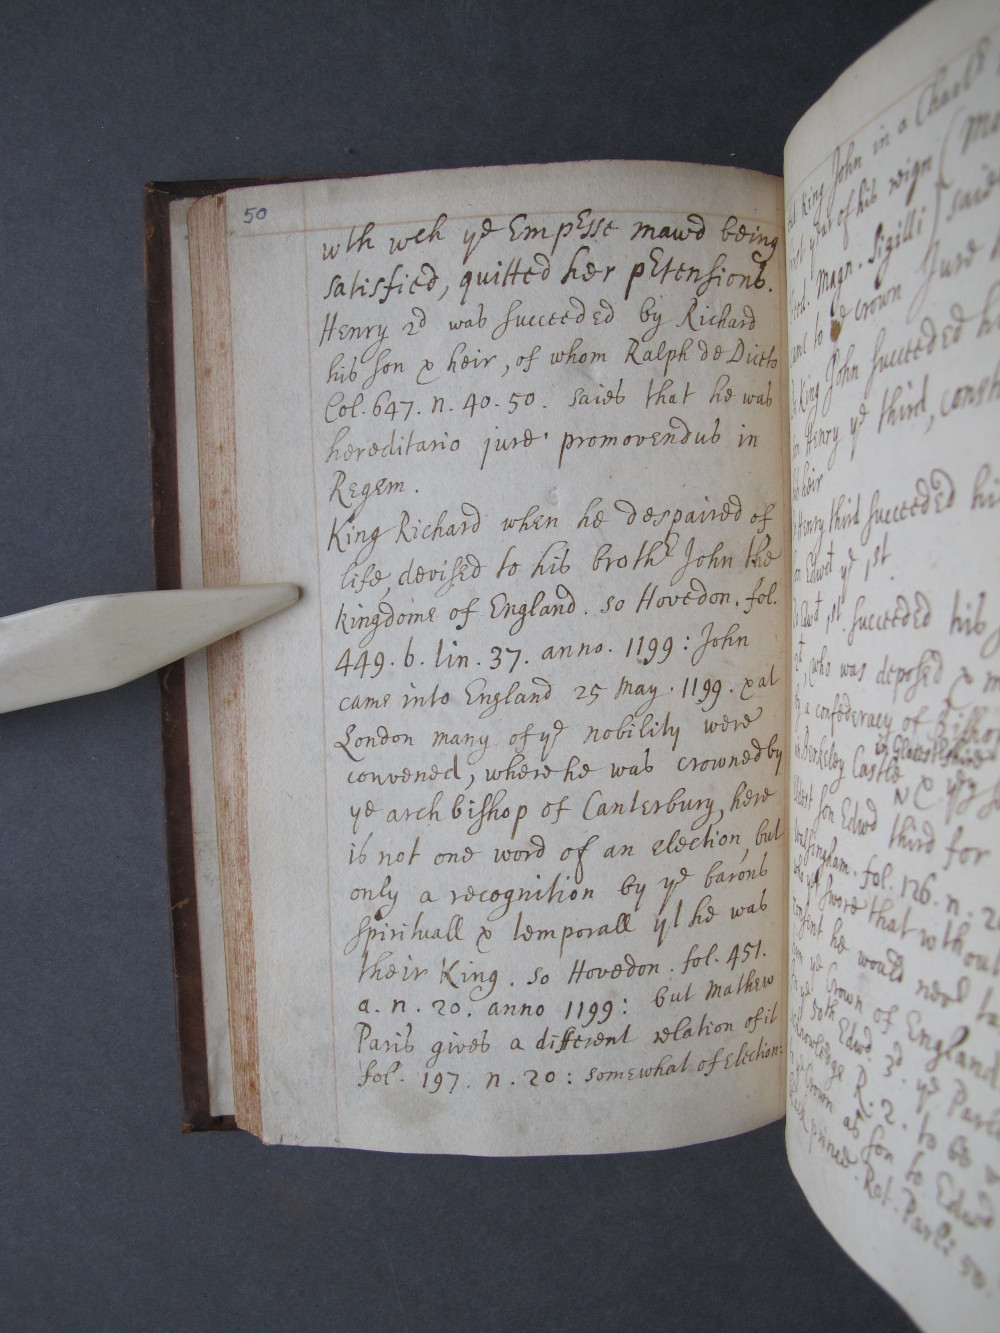 50
wth wch ye Empesse mawd being
satisfied, quitted her pretensions.
Henry 2d was succeeded by Richard
his son & heir, of whom Ralph de Diceto
Col. 647. n. 40. 50. saies that he was
hereditario jure promovendus in
Regem.
King Richard when he despaired of
life, devised to his brothr John the
kingdome of England. so Hovedon. fol.
449. b. lin. 37. anno. 1199: John
came into England 25 May. 1199. & at
London many of ye nobility were
convened, where he was crowned by
ye archbishop of Canterbury, here
is not one word of an election, but
only a recognition by ye barons
spirituall & temporall yt he was
their King. so Hovedon. fol. 451.
a. n. 20. anno 1199: but Mathew
Paris gives a different relation of it
fol. 197. n. 20: somewhat of election:
King John in a
year of his reign
Magn. Sigilli) said
to ye crown Jure
King John succeeded
Henry ye third,
heir
Henry third succeeded
Edwd ye 1st.
Edwd 1st. succeeded his
who was deposed &
a confederacy of
Berkeley Castle
in
son Edwd third for
fol. 126. n.
swore that without
he would
ye Crown of England
50th Edwd. 3d. ye
R. 2. to be
Crown as son to Edwd
Rot. Parl. 50.